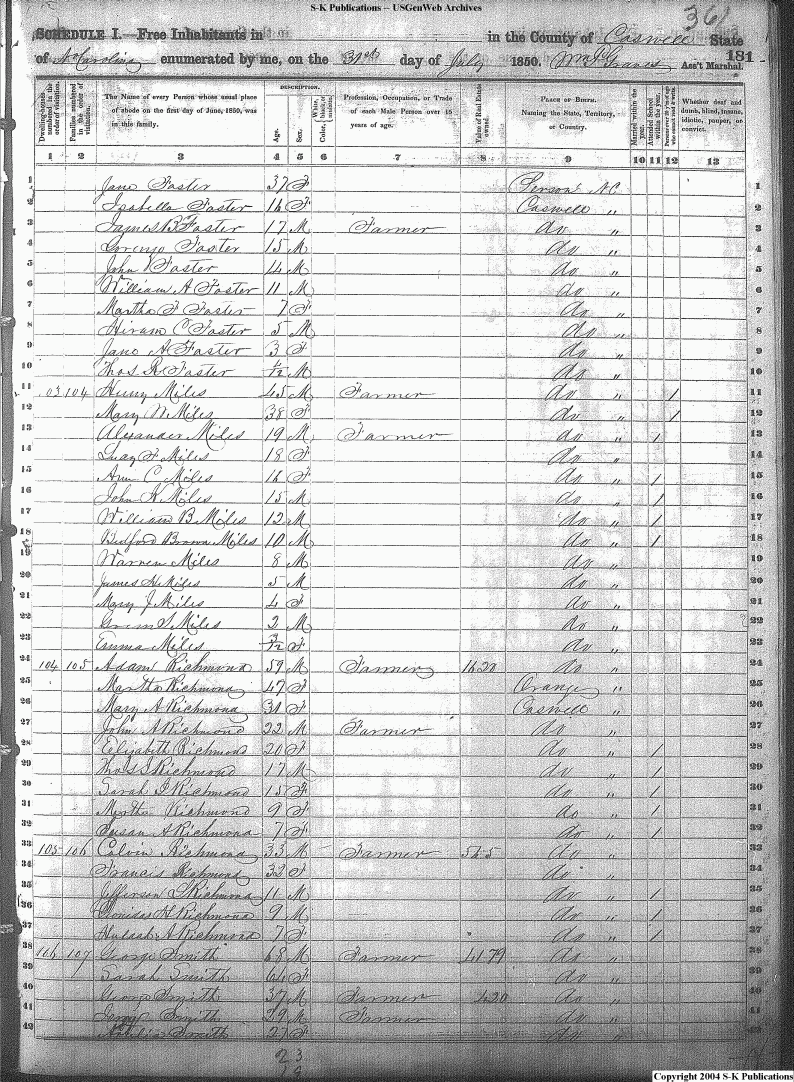 S-K Publications -- USGenWeb Archives
361
SCHEDULE I.—Free Inhabitants in in the County of Caswell State
of No Carolina enumerated by me, on the 31st day of July 1850. Wm P Graves Ass't Marshal. 181
Dwelling-houses numbered in the order of visitation.
Families numbered in the order of visitation.
The Name of every Person whose usual place of abode on the first day of June, 1850, was in this family.
DESCRIPTION.
Age.
Sex.
Color, White, black, or mulatto.
Profession, Occupation, or Trade of each Male Person over 15 years of age.
Value of Real Estate owned.
PLACE OF BIRTH. Naming the State, Territory, or Country.
Married within the year.
Attended School within the year.
Persons over 20 y'rs of age who cannot read & write.
Whether deaf and dumb, blind, insane, idiotic, pauper, or convict.
1 2 3 4 5 6 7 8 9 10 11 12 13
1 Jane Foster 37 F Person NC 1
2 Isabella Foster 16 F Caswell " 2
3 James B Foster 17 M Farmer do " 3
4 Lorenzo Foster 15 M do " 4
5 John Foster 14 M do " 5
6 William A Foster 11 M do " 6
7 Martha F Foster 7 F do " 7
8 Hiram C Foster 5 M do " 8
9 Jane A Foster 3 F do " 9
10 Thos R Foster 4/12 M do " 10
11 03 104 Henry Miles 45 M Farmer do " 1 11
12 Mary W Miles 38 F do " 1 12
13 Alexander Miles 19 M Farmer do " 1 13
14 Lucy F Miles 18 F do " 14
15 Ann C Miles 16 F do " 1 15
16 John K Miles 15 M do " 1 16
17 William B Miles 12 M do " 1 17
18 Bedford Brown Miles 10 M do " 1 18
19 Warren Miles 8 M do " 19
20 James H Miles 5 M do " 20
21 Mary J Miles 4 F do " 21
22 S Miles 2 M do " 22
23 Emma Miles /12 F do " 23
24 104 105 Adam Richmond 59 M Farmer 1620 do " 24
25 Martha Richmond 47 F Orange " 25
26 Mary A Richmond 31 F Caswell " 26
27 John A Richmond 22 M Farmer do " 27
28 Elizabeth Richmond 20 F do " 1 28
29 Thos S Richmond 17 M do " 1 29
30 Sarah I Richmond 15 F do " 1 30
31 Richmond 9 F do " 1 31
32 Susan A Richmond 7 F do " 1 32
33 105 106 Calvin Richmond 33 M Farmer 545 do " 33
34 Francis Richmond 32 F do " 34
35 Jefferson S Richmond 11 M do " 1 35
36 Leonidas H Richmond 9 M do " 1 36
37 A Richmond 7 F do " 1 37
38 106 107 George Smith 68 M Farmer 4179 do " 38
39 Sarah Smith 64 F do " 39
40 George Smith 37 M Farmer 420 do " 40
41 Smith 29 M Farmer do " 41
42 Smith 27 F do " 42
23
Copyright 2004 S-K Publications